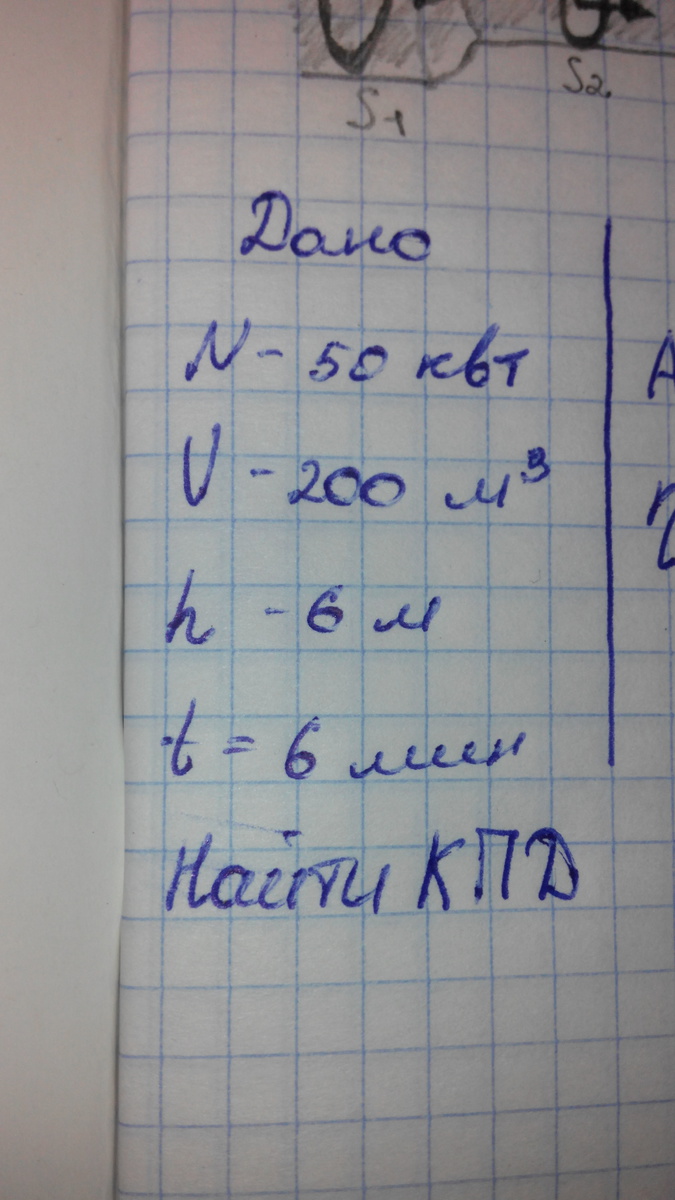 S1
S2
Дано
N - 50 квт
V - 200 м³
h - 6 м
t = 6 мин
Найти КПД
A
η